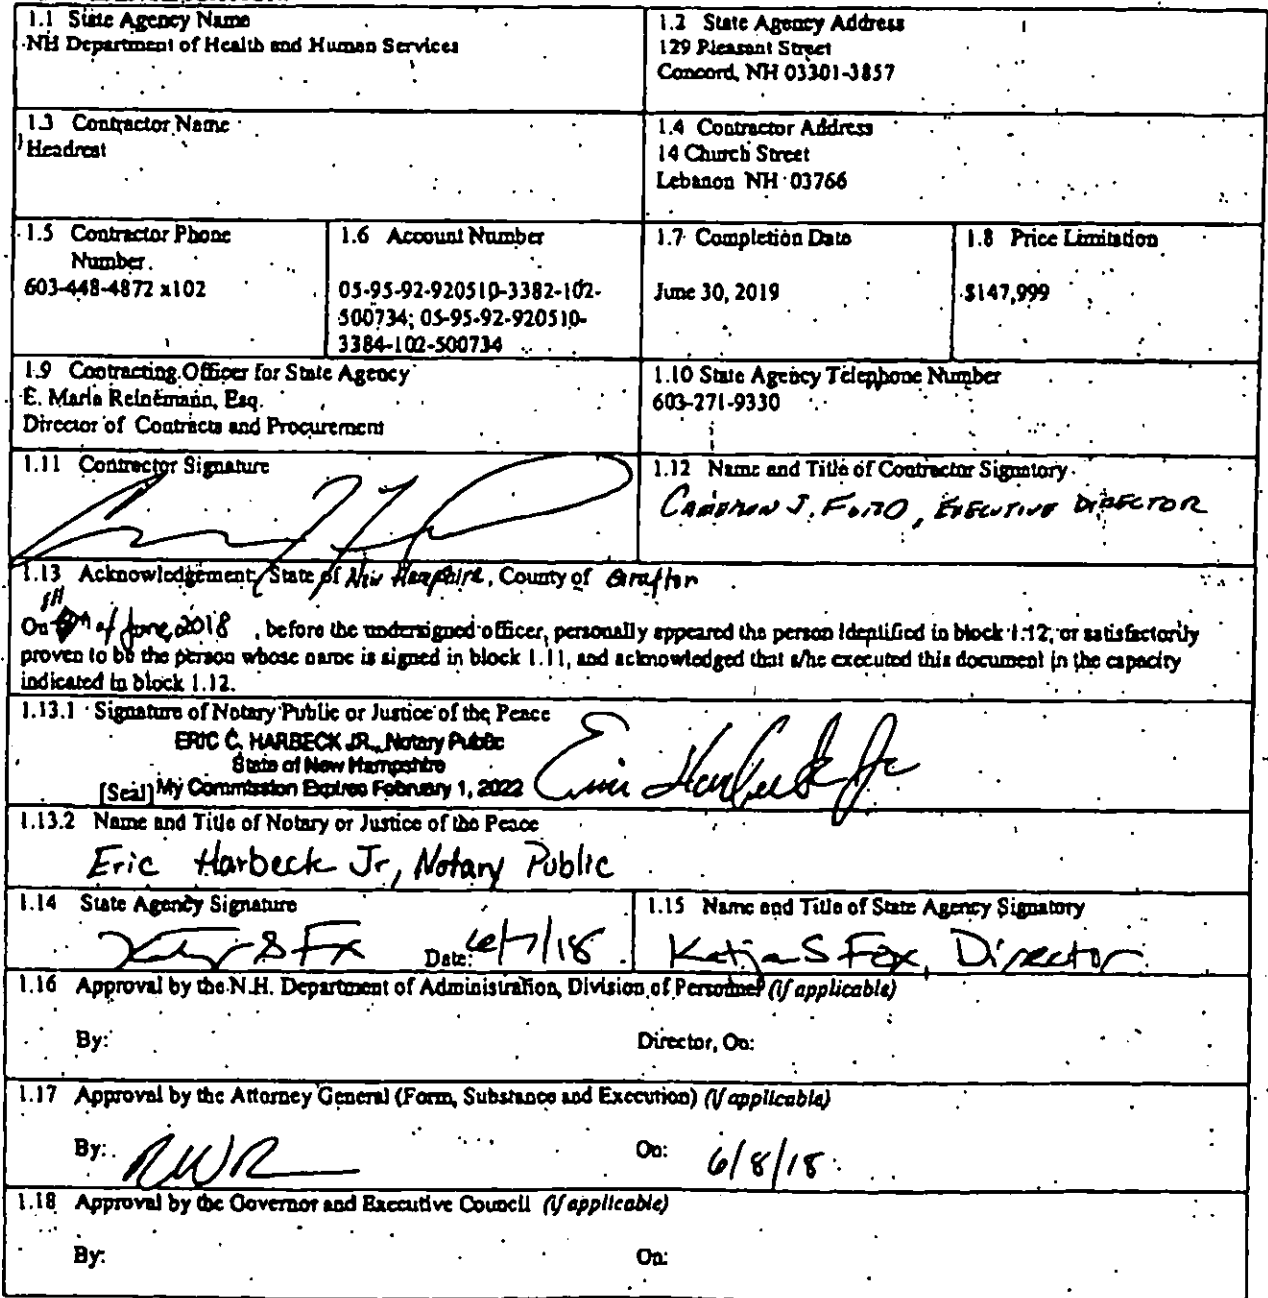 1.1 State Agency Name
NH Department of Health and Human Services
1.2 State Agency Address
129 Pleasant Street
Concord, NH 03301-3857
1.3 Contractor Name
Headrest
1.4 Contractor Address
14 Church Street
Lebanon NH 03766
1.5 Contractor Phone
Number
603-448-4872 x102
1.6 Account Number
05-95-92-920510-3382-102-
500734; 05-95-92-920510-
3384-102-500734
1.7 Completion Date
June 30, 2019
1.8 Price Limitation
$147,999
1.9 Contracting Officer for State Agency
E. Maria Reinemann, Esq.
Director of Contracts and Procurement
1.10 State Agency Telephone Number
603-271-9330
1.11 Contractor Signature
1.12 Name and Title of Contractor Signatory
J. , EXECUTIVE DIRECTOR
1.13 Acknowledgement: State of New Hampshire, County of Grafton
On of June, 2018 , before the undersigned officer, personally appeared the person identified in block 1.12, or satisfactorily
proven to be the person whose name is signed in block 1.11, and acknowledged that s/he executed this document in the capacity
indicated in block 1.12.
1.13.1 Signature of Notary Public or Justice of the Peace
ERIC C. HARBECK JR., Notary Public
State of New Hampshire
[Seal] My Commission Expires February 1, 2022
Eric Harbeck Jr
1.13.2 Name and Title of Notary or Justice of the Peace
Eric Harbeck Jr, Notary Public
1.14 State Agency Signature
Date: 6/7/18
1.15 Name and Title of State Agency Signatory
Katja S Fox, Director
1.16 Approval by the N.H. Department of Administration, Division of Personnel (if applicable)
By:
Director, On:
1.17 Approval by the Attorney General (Form, Substance and Execution) (if applicable)
By:
On: 6/8/18
1.18 Approval by the Governor and Executive Council (if applicable)
By:
On: